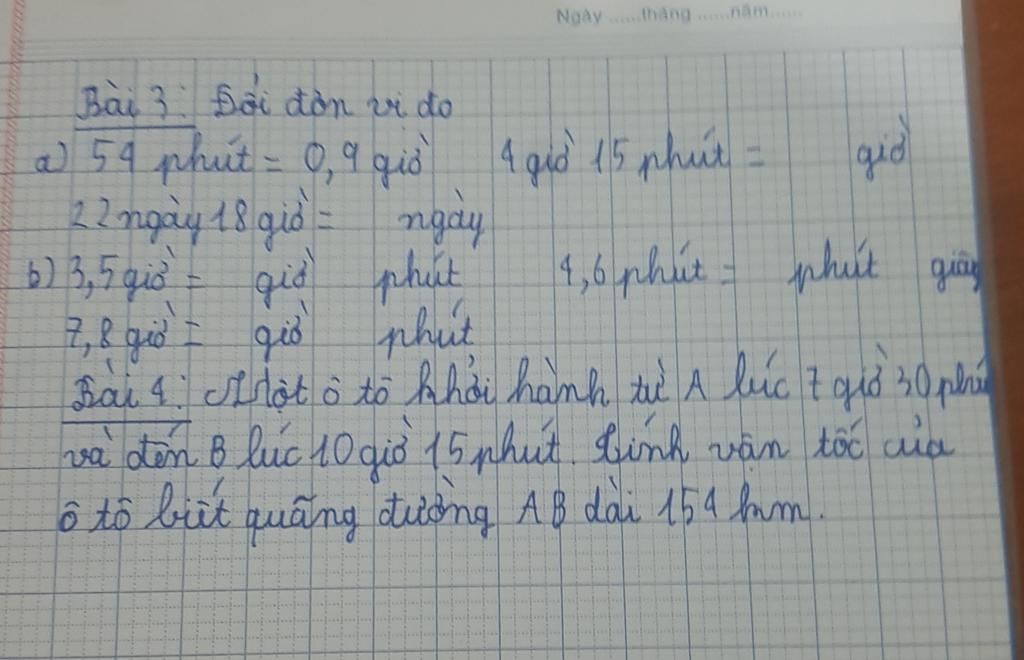 Ngày ......tháng ......năm......
Bài 3: Đổi đơn vị đo
a) 54 phút = 0,9 giờ 4 giờ 15 phút = giờ
22 ngày 18 giờ = ngày
b) 3,5 giờ = giờ phút 4,6 phút = phút giây
7,8 giờ = giờ phút
Bài 4: Một ô tô khởi hành từ A lúc 7 giờ 30 phú
và đến B lúc 10 giờ 15 phút. Tính vận tốc của
ô tô biết quãng đường AB dài 154 km.